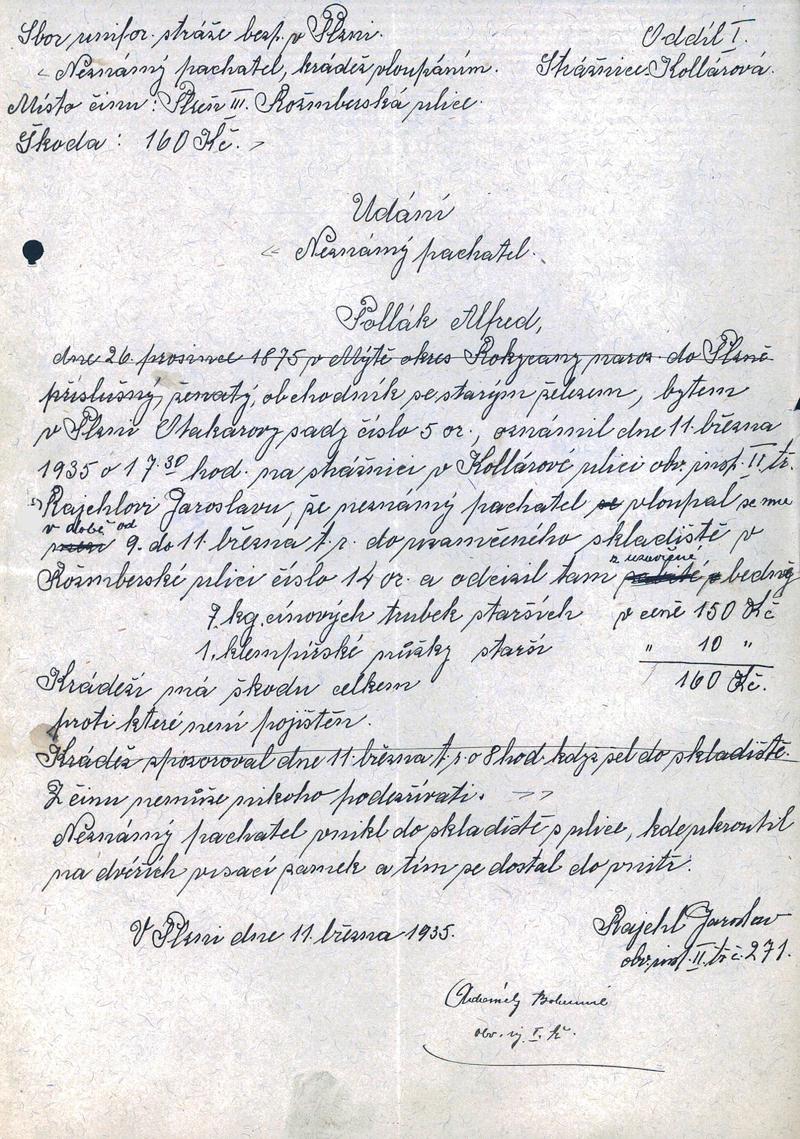 Sbor unifor. stráže bezp. v Plzni.
Oddíl I.
« Neznámý pachatel, krádež vloupáním.
Strážnice: Kollárova.
Místo činu: Plzeň III. Rožmberská ulice.
Škoda: 160 Kč. »
Udání
« Neznámý pachatel.
Pollák Alfred,
dne 26. prosince 1875 v Mýtě okres Rokycany naroz. do Plzně
příslušný, ženatý, obchodník se starým železem, bytem
v Plzni Otakarovy sady číslo 5 or., oznámil dne 11. března
1935 o 17.30 hod. na strážnici v Kollárově ulici obv. insp. II tř.
Rajchlovi Jaroslavu, že neznámý pachatel se vloupal se mu
v době od
9. do 11. března t. r. do uzamčeného skladiště v
z uzavřené
Rožmberské ulici číslo 14 or. a odcizil tam bedny
7. kg. cínových trubek starších v ceně 150 Kč
1. klempířské nůžky starší " 10 "
160 Kč.
Krádeží má škodu celkem
proti které není pojištěn.
Krádež zpozoroval dne 11. března t. r. o 8 hod. když šel do skladiště.
Z činu nemůže nikoho podezřívati. »
Neznámý pachatel vnikl do skladiště s ulice, kde ukroutil
na dvéřích visací zamek a tím se dostal do vnitř.
V Plzni dne 11. března 1935.
Rajchl Jaroslav
obv. insp. II. tř. č. 271.
Bohumil
obv. in. I. tř.